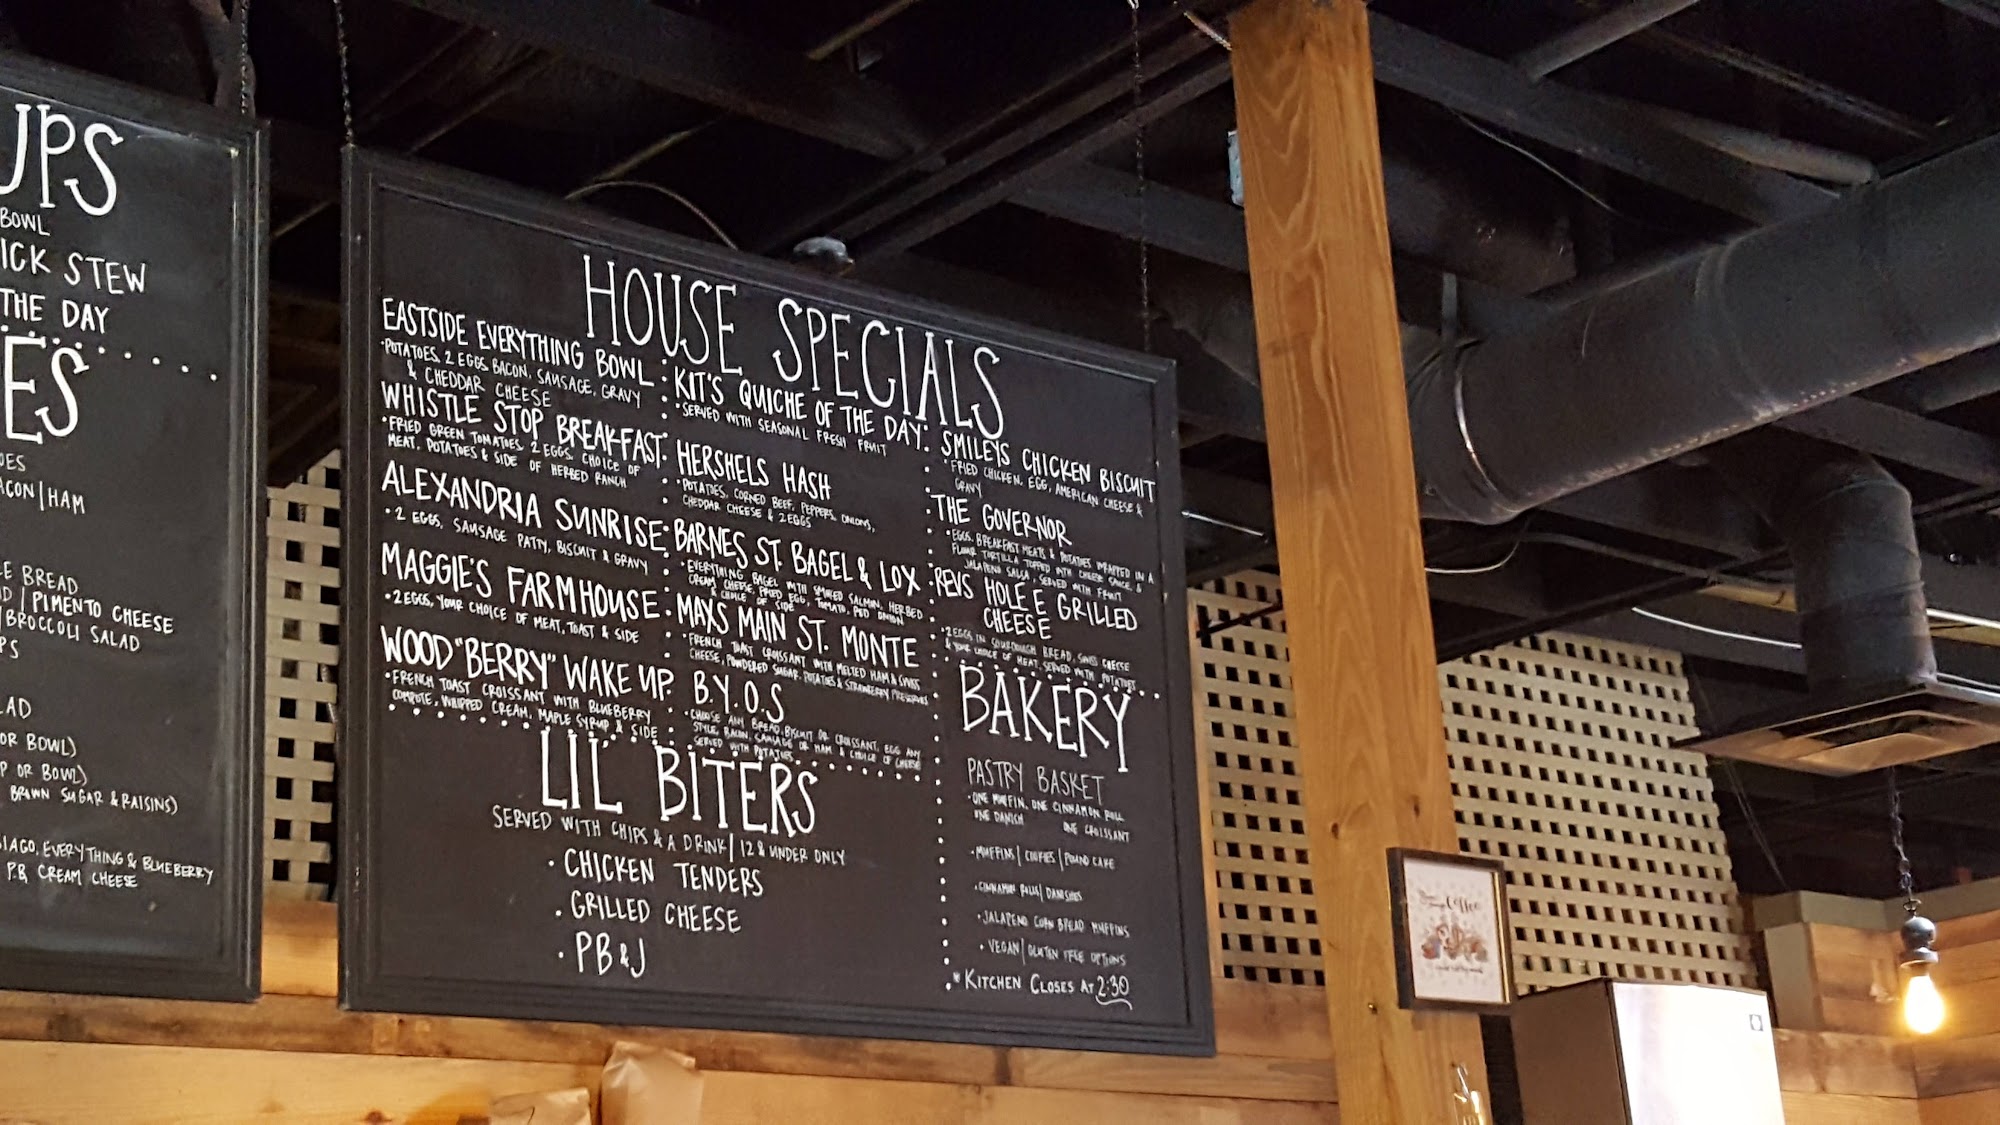 UPS
BOWL
ICK STEW
THE DAY
ES
OES
ACON | HAM
E BREAD
D | PIMENTO CHEESE
| BROCCOLI SALAD
PS
LAD
OR BOWL)
P OR BOWL)
BROWN SUGAR & RAISINS)
SIAGO, EVERYTHING & BLUEBERRY
P.B, CREAM CHEESE
HOUSE SPECIALS
EASTSIDE EVERYTHING BOWL
•POTATOES, 2 EGGS, BACON, SAUSAGE, GRAVY
& CHEDDAR CHEESE
WHISTLE STOP BREAKFAST
•FRIED GREEN TOMATOES, 2 EGGS, CHOICE OF
MEAT, POTATOES & SIDE OF HERBED RANCH
ALEXANDRIA SUNRISE
•2 EGGS, SAUSAGE PATTY, BISCUIT & GRAVY
MAGGIE'S FARMHOUSE
•2 EGGS, YOUR CHOICE OF MEAT, TOAST & SIDE
WOOD "BERRY" WAKE UP
•FRENCH TOAST CROISSANT WITH BLUEBERRY
COMPOTE, WHIPPED CREAM, MAPLE SYRUP & SIDE
KIT'S QUICHE OF THE DAY
•SERVED WITH SEASONAL FRESH FRUIT
HERSHELS HASH
•POTATOES, CORNED BEEF, PEPPERS, ONIONS,
CHEDDAR CHEESE & 2 EGGS
BARNES ST. BAGEL & LOX
•EVERYTHING BAGEL WITH SMOKED SALMON, HERBED
CREAM CHEESE, FRIED EGG, TOMATO, RED ONION
& CHOICE OF SIDE
MAXS MAIN ST. MONTE
•FRENCH TOAST CROISSANT WITH MELTED HAM & SWISS
CHEESE, POWDERED SUGAR, POTATOES & STRAWBERRY PRESERVES
B.Y.O.S
•CHOOSE ANY BREAD, BISCUIT OR CROISSANT, EGG ANY
STYLE, BACON, SAUSAGE OR HAM & CHOICE OF CHEESE
SERVED WITH POTATOES
SMILEYS CHICKEN BISCUIT
•FRIED CHICKEN, EGG, AMERICAN CHEESE &
GRAVY
THE GOVERNOR
•EGGS, BREAKFAST MEATS & POTATOES WRAPPED IN A
FLOUR TORTILLA TOPPED WITH CHEESE SAUCE, &
JALAPENO SALSA, SERVED WITH FRUIT
REVS HOLE E GRILLED
CHEESE
•2 EGGS IN SOURDOUGH BREAD, SWISS CHEESE
& YOUR CHOICE OF MEAT, SERVED WITH POTATOES
LIL' BITERS
SERVED WITH CHIPS & A DRINK | 12 & UNDER ONLY
• CHICKEN TENDERS
• GRILLED CHEESE
• PB&J
BAKERY
PASTRY BASKET
•ONE MUFFIN, ONE CINNAMON ROLL
ONE DANISH ONE CROISSANT
•MUFFINS | COOKIES | POUND CAKE
•CINNAMON ROLLS | DANISHES
•JALAPENO CORN BREAD MUFFINS
•VEGAN | GLUTEN FREE OPTIONS
*KITCHEN CLOSES AT 2:30
Coffee